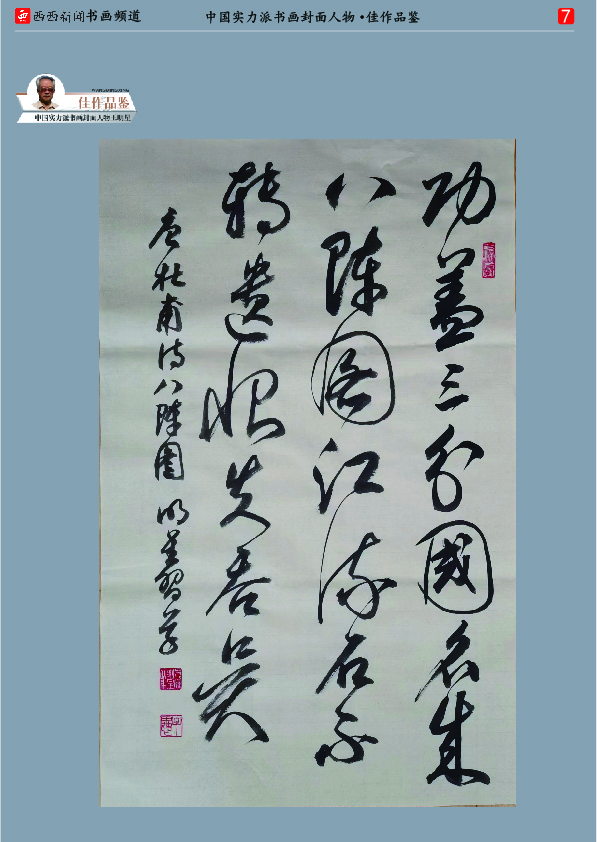 西西新闻书画频道
中国实力派书画封面人物·佳作品鉴
7
WANGMINGXING
佳作品鉴
中国实力派书画封面人物王明星
功蓋三分國名成
八陣圖江流石不
轉遺恨失吞吴
唐杜甫诗八陣圖 明星習草